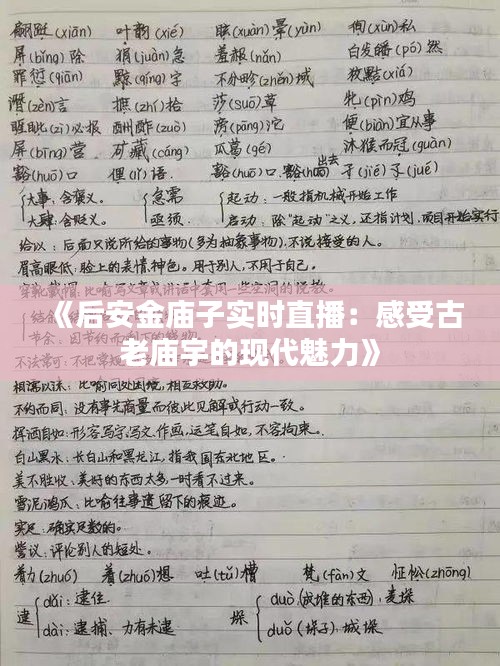 翩跹(xiān) 叶韵(xié) 眩(xuàn)晕(yùn) 徇(xùn)私
屏(bǐng)除 狷(juàn)急 羞赧(nǎn) 白发皤(pó)然
罪愆(qiān) 黥(qíng)字 不分畛(zhěn)域 狡黠(xiá)
谮(zèn)言 摭(zhí)拾 莎(suō)草 牝(pìn)鸡
睚眦(zì)必报 酬酢(zuò) 滂(pāng)沱 便(biàn)宜从事
屏(bīng)营 矿藏(cáng) 瓜葛(gé) 沐猴而冠(guàn)
豁(huō)口 俚(lǐ)语 豁(huō)口、豁(huō)出去 孑(jié)孓(jué)
大事：含褒义。 急需 起动：一般指机械开始工作
大肆：含贬义。 亟须 启动：除"起动"之义，还指计划，项目开始实行
给以：后面只说所给的事物(多为抽象事物)，不说接受的人。
眉高眼低：脸上的表情神色。用于别人，不用于自己。
《后安金庙子实时直播：感受古
老庙宇的现代魅力》
相濡以沫：比喻同处困境，相互救助。
不约而同：没有事先商量而彼此见解或行动一致。
挥洒自如：形容写字，写文，作画，运笔自如，不容拘束。
白山黑水：长白山和黑龙江，指我国东北地区。
美不胜收：美好的东西太多，一时看不过来。
雪泥鸿爪：比喻往事遗留下的痕迹。
实足：确实足数的。
訾议：评论别人的短处。
着力(zhuó) 着(zhuó)想 吐(tǔ)槽 梵(fàn)文 怔忪(zhōng)
逮 dǎi：逮住 垛 duò(成堆的东西)：麦垛
dài：逮捕、力有未逮 duǒ(垛子)：城垛